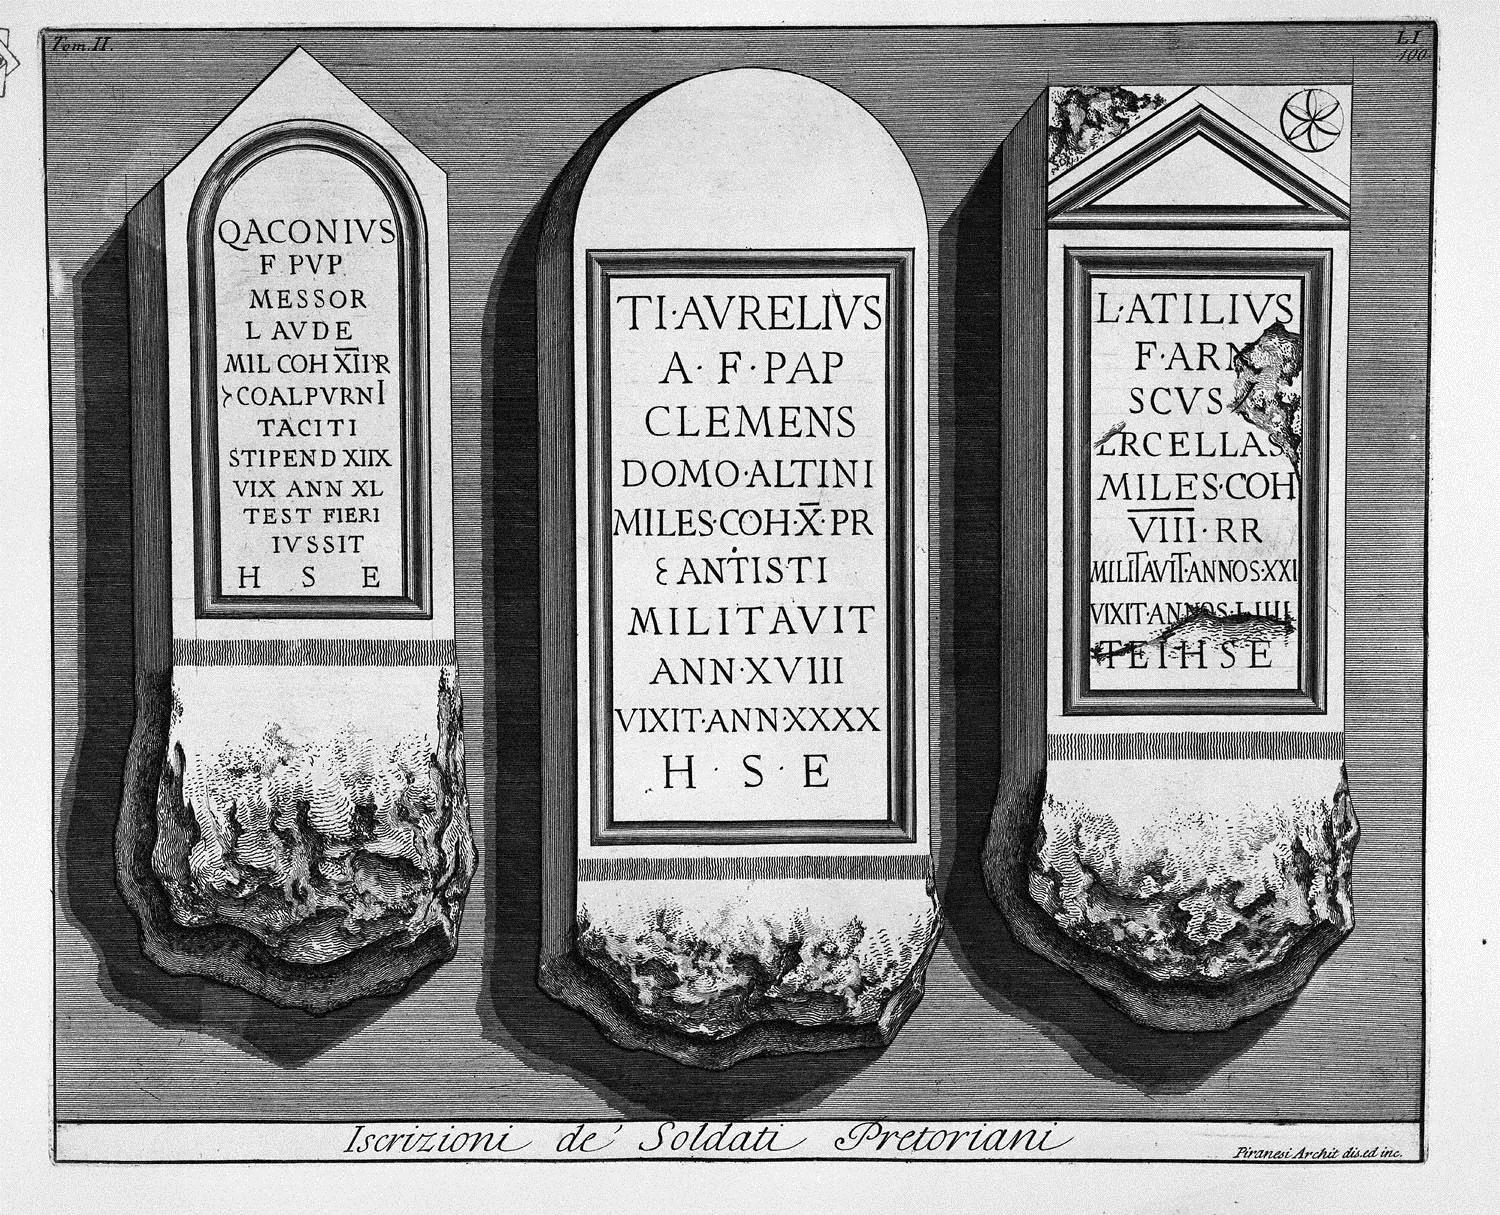 Tom. II.
LI
100
QACONIVS
F PVP
MESSOR
L AVDE
MIL COH X̅I̅I̅ R
COALPVRNI
TACITI
STIPEND XIIX
VIX ANN XL
TEST FIERI
IVSSIT
H S E
TI·AVRELIVS
A·F·PAP
CLEMENS
DOMO·ALTINI
MILES·COH·X̅·PR
ANTISTI
MILITAVIT
ANN·XVIII
VIXIT·ANN·XXXX
H·S·E
L·ATILIVS
F·ARN
SCVS
ERCELLAS
MILES·COH
V̅I̅I̅I̅·RR
MILITAVIT·ANNOS·XXI
VIXIT·ANNOS·LIIII
TEIHSE
Iscrizioni de' Soldati Pretoriani
Piranesi Archit dis. ed inc.